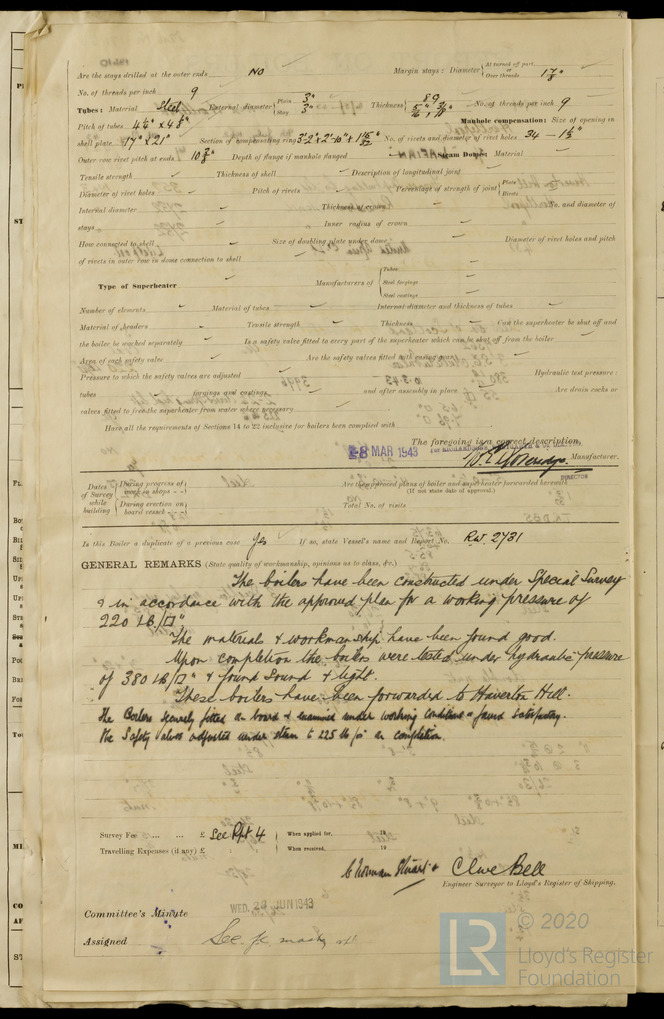 Are the stays drilled at the outer ends No Margin stays: Diameter At turned off part or Over threads 1 7/8"
No. of threads per inch 9
Tubes: Material Steel External diameter Plain 3" Stay 3" Thickness 8 G 5/16" No. of threads per inch 9
Pitch of tubes Manhole compensation: Size of opening in
shell plate 17" x 21" Section of compensating ring No. of rivets and diameter of rivet holes 34 -
Outer row rivet pitch at ends Depth of flange if manhole flanged Steam Dome: Material
Tensile strength Thickness of shell Description of longitudinal joint
Diameter of rivet holes Pitch of rivets Percentage of strength of joint Plate Rivets
Internal diameter Thickness of crown No. and diameter of
stays Inner radius of crown
How connected to shell Size of doubling plate under dome Diameter of rivet holes and pitch
of rivets in outer row in dome connection to shell
Type of Superheater Manufacturers of Tubes Steel forgings Steel castings
Number of elements Material of tubes Internal diameter and thickness of tubes
Material of headers Tensile strength Thickness Can the superheater be shut off and
the boiler be worked separately Is a safety valve fitted to every part of the superheater which can be shut off from the boiler
Area of each safety valve Are the safety valves fitted with easing gear
Pressure to which the safety valves are adjusted Hydraulic test pressure:
tubes forgings and castings and after assembly in place Are drain cocks or
valves fitted to free the superheater from water where necessary
Have all the requirements of Sections 14 to 22 inclusive for boilers been complied with
The foregoing is a correct description,
-8 MAR 1943 Manufacturer.
DIRECTOR
Dates of Survey while building During progress of work in shops - - Are the approved plans of boiler and superheater forwarded herewith
(If not state date of approval.)
During erection on board vessel - - - Total No. of visits
Is this Boiler a duplicate of a previous case Yes If so, state Vessel's name and Report No. RW 2731
GENERAL REMARKS (State quality of workmanship, opinions as to class, &c.)
The boilers have been constructed under Special Survey
& in accordance with the approved plan for a working pressure of
220 LB/□"
The materials & workmanship have been found good.
Upon completion the boilers were tested under hydraulic pressure
of 380 LB/□" & found sound & tight.
These boilers have been forwarded to Haverton Hill.
The Boilers securely fitted on board & examined under working conditions & found satisfactory.
The Safety valves adjusted under steam to 225 lb/□" on completion.
Survey Fee ... ... £ See Rpt. 4 When applied for, 19
Travelling Expenses (if any) £ : : When received, 19
C Norman Stuart & Clive Bell
Engineer Surveyor to Lloyd's Register of Shipping.
Committee's Minute WED. 23 JUN 1943
Assigned See
LR
© 2020
Lloyd's Register
Foundation